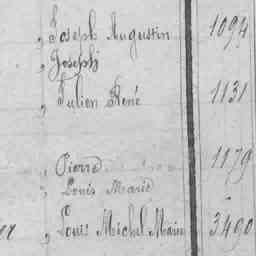 , Joseph Augustin 1094
, Joseph
, Julien René 1131
, Pierre 1179
, Louis Marie
, Louis Michel Marie 3490